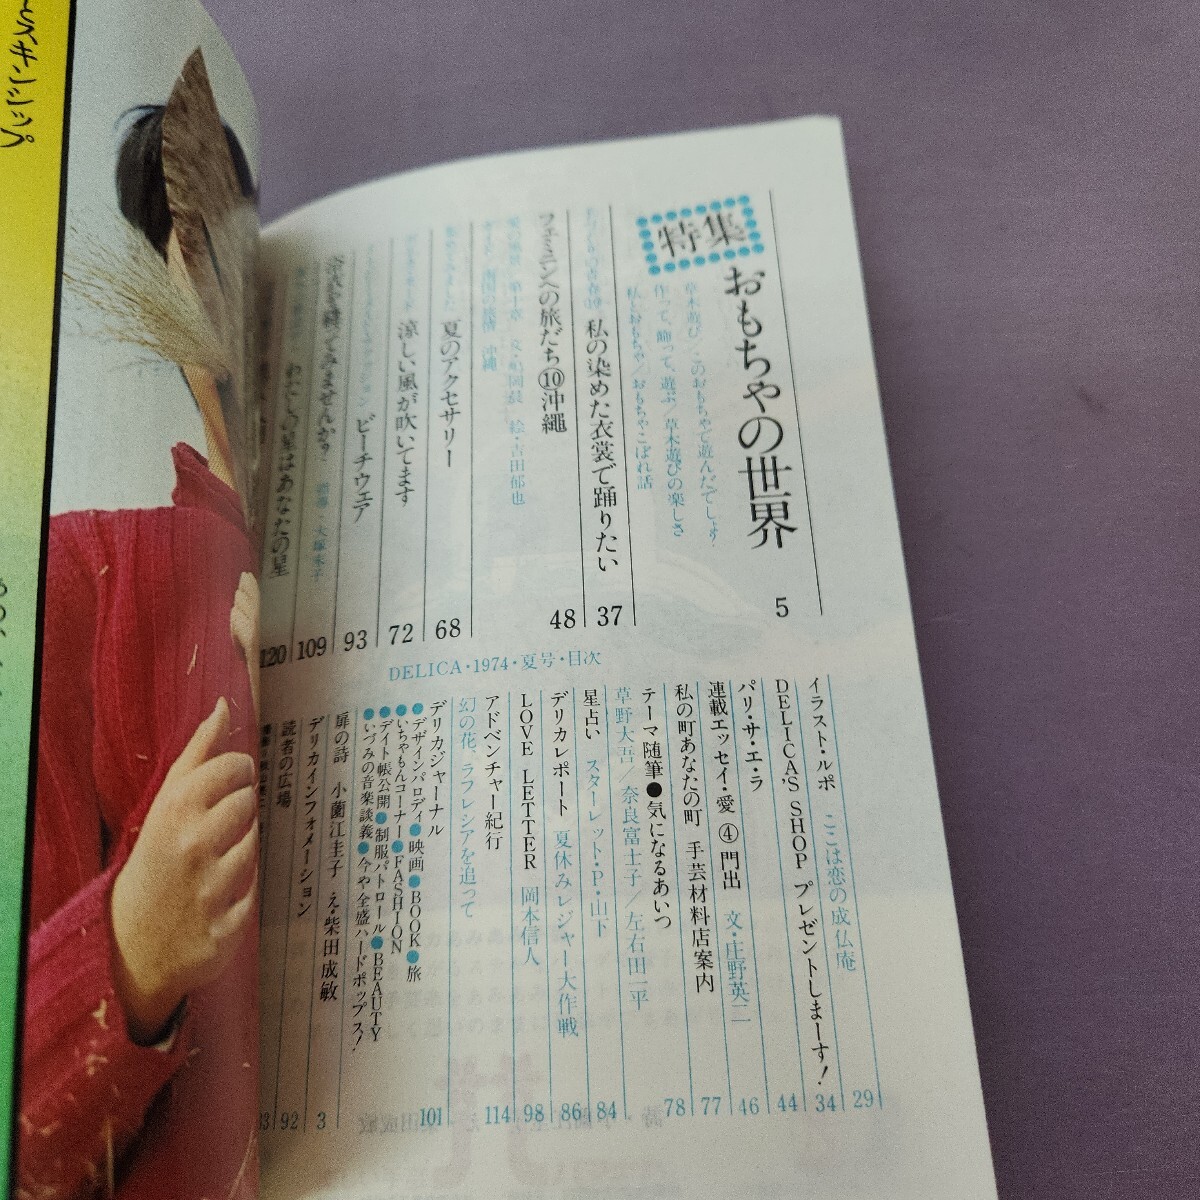 とスキンシップ
特集
おもちゃの世界 5
草木遊び/このおもちゃで遊んだでしょ!
作って、飾って、遊ぶ/草木遊びの楽しさ
私とおもちゃ/おもちゃこぼれ話
私の染めた衣裳で踊りたい 37
フェミニンへの旅だち⑩沖縄 48
絵・吉田郁也
夏のアクセサリー 68
涼しい風が吹いてます 72
ビーチウェア 93
109
わたしの星はあなたの星 120
DELICA・1974・夏号・目次
イラスト・ルポ ここは恋の成仏庵 29
DELICA'S SHOP プレゼントしまーす! 34
パリ・サ・エ・ラ 44
連載エッセイ・愛 ④門出 文・庄野英二 46
私の町あなたの町 手芸材料店案内 77
テーマ随筆●気になるあいつ 78
草野大吾/奈良富士子/左右田一平
星占い スターレット・P・山下 84
デリカレポート 夏休みレジャー大作戦 86
LOVE LETTER 岡本信人 98
アドベンチャー紀行 114
幻の花、ラフレシアを追って
デリカジャーナル 101
●デザインパロディ●映画●BOOK●旅
●いちゃもんコーナー●FASHION
●デイト帳公開●制服パトロール●BEAUTY
●いづみの音楽談義●今や全盛ハードポップス!
扉の詩 小薗江圭子 え・柴田成敏 3
デリカインフォメーション 92
読者の広場